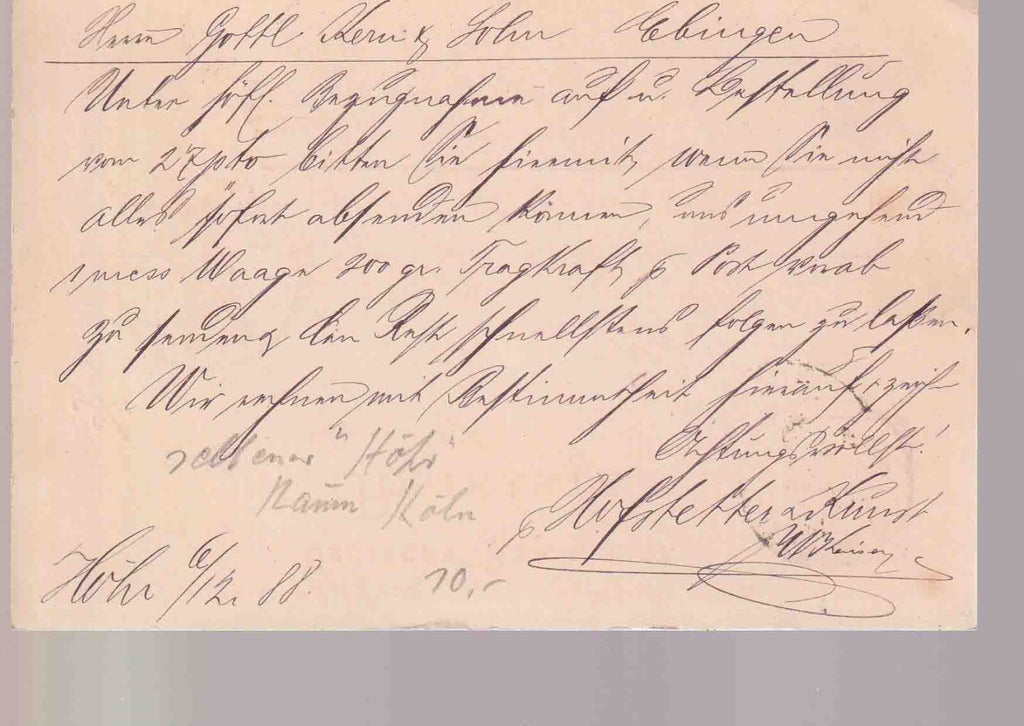 Herrn Gottl Kern & Sohn Ebingen
Unter höfl. Bezugnahme auf u. Bestellung
vom 27 pto bitten Sie hiermit, wenn Sie nicht
alles sofort absenden können, uns umgehend
Waage 200 gr. Tragkraft p Post vorab
zu senden & den Rest schnellstens folgen zu laßen.
Wir rechnen mit Bestimmtheit hierauf & zeichn
Achtungsvollst!
seltener "Höhr"
Raum Köln
p Hofstetter & Kunst
Höhr 6/12. 88.
10,-